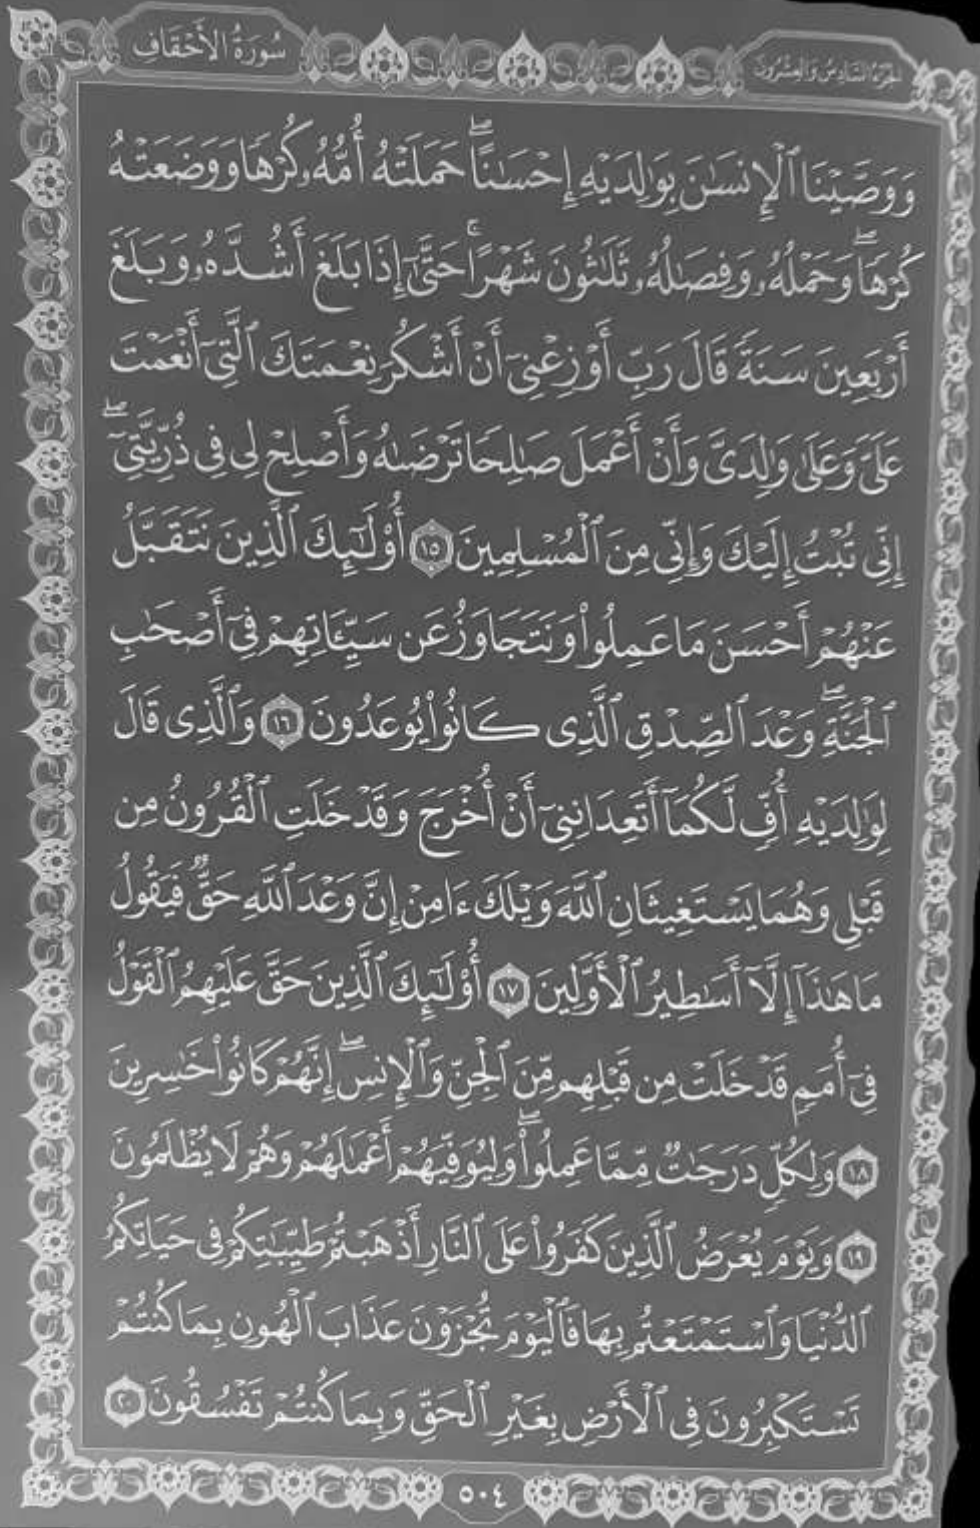 الجزء السادس والعشرون
سُورَةُ الأَحْقَافِ
وَوَصَّيْنَا ٱلْإِنسَٰنَ بِوَٰلِدَيْهِ إِحْسَٰنًا ۖ حَمَلَتْهُ أُمُّهُۥ كُرْهًا وَوَضَعَتْهُ
كُرْهًا ۖ وَحَمْلُهُۥ وَفِصَٰلُهُۥ ثَلَٰثُونَ شَهْرًا ۚ حَتَّىٰٓ إِذَا بَلَغَ أَشُدَّهُۥ وَبَلَغَ
أَرْبَعِينَ سَنَةً قَالَ رَبِّ أَوْزِعْنِىٓ أَنْ أَشْكُرَ نِعْمَتَكَ ٱلَّتِىٓ أَنْعَمْتَ
عَلَىَّ وَعَلَىٰ وَٰلِدَىَّ وَأَنْ أَعْمَلَ صَٰلِحًا تَرْضَىٰهُ وَأَصْلِحْ لِى فِى ذُرِّيَّتِىٓ ۖ
إِنِّى تُبْتُ إِلَيْكَ وَإِنِّى مِنَ ٱلْمُسْلِمِينَ ١٥ أُو۟لَٰٓئِكَ ٱلَّذِينَ نَتَقَبَّلُ
عَنْهُمْ أَحْسَنَ مَا عَمِلُوا۟ وَنَتَجَاوَزُ عَن سَيِّـَٔاتِهِمْ فِىٓ أَصْحَٰبِ
ٱلْجَنَّةِ ۖ وَعْدَ ٱلصِّدْقِ ٱلَّذِى كَانُوا۟ يُوعَدُونَ ١٦ وَٱلَّذِى قَالَ
لِوَٰلِدَيْهِ أُفٍّ لَّكُمَآ أَتَعِدَانِنِىٓ أَنْ أُخْرَجَ وَقَدْ خَلَتِ ٱلْقُرُونُ مِن
قَبْلِى وَهُمَا يَسْتَغِيثَانِ ٱللَّهَ وَيْلَكَ ءَامِنْ إِنَّ وَعْدَ ٱللَّهِ حَقٌّ فَيَقُولُ
مَا هَٰذَآ إِلَّآ أَسَٰطِيرُ ٱلْأَوَّلِينَ ١٧ أُو۟لَٰٓئِكَ ٱلَّذِينَ حَقَّ عَلَيْهِمُ ٱلْقَوْلُ
فِىٓ أُمَمٍ قَدْ خَلَتْ مِن قَبْلِهِم مِّنَ ٱلْجِنِّ وَٱلْإِنسِ ۖ إِنَّهُمْ كَانُوا۟ خَٰسِرِينَ
١٨ وَلِكُلٍّ دَرَجَٰتٌ مِّمَّا عَمِلُوا۟ ۖ وَلِيُوَفِّيَهُمْ أَعْمَٰلَهُمْ وَهُمْ لَا يُظْلَمُونَ
١٩ وَيَوْمَ يُعْرَضُ ٱلَّذِينَ كَفَرُوا۟ عَلَى ٱلنَّارِ أَذْهَبْتُمْ طَيِّبَٰتِكُمْ فِى حَيَاتِكُمُ
ٱلدُّنْيَا وَٱسْتَمْتَعْتُم بِهَا فَٱلْيَوْمَ تُجْزَوْنَ عَذَابَ ٱلْهُونِ بِمَا كُنتُمْ
تَسْتَكْبِرُونَ فِى ٱلْأَرْضِ بِغَيْرِ ٱلْحَقِّ وَبِمَا كُنتُمْ تَفْسُقُونَ ٢٠
٥٠٤